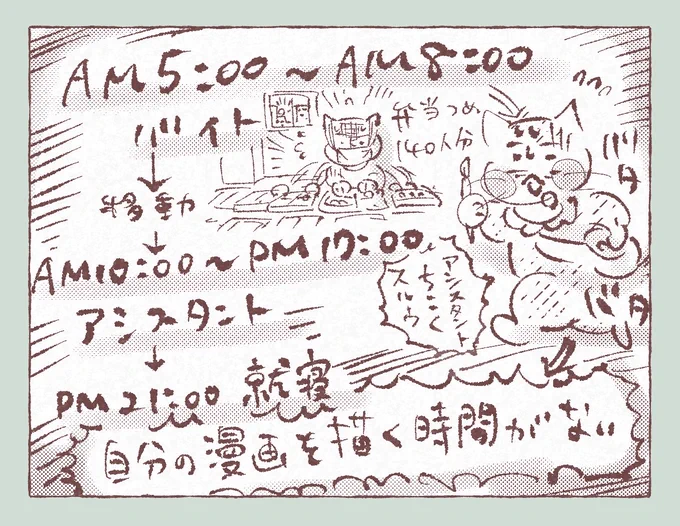 AM5:00~AM8:00
バイト
弁当つめ
140人分
移動
AM10:00~PM17:00
アシスタント
アシスタント
ちょく
スルゥ
バタ
バタ
PM21:00 就寝
自分の漫画を描く時間がない